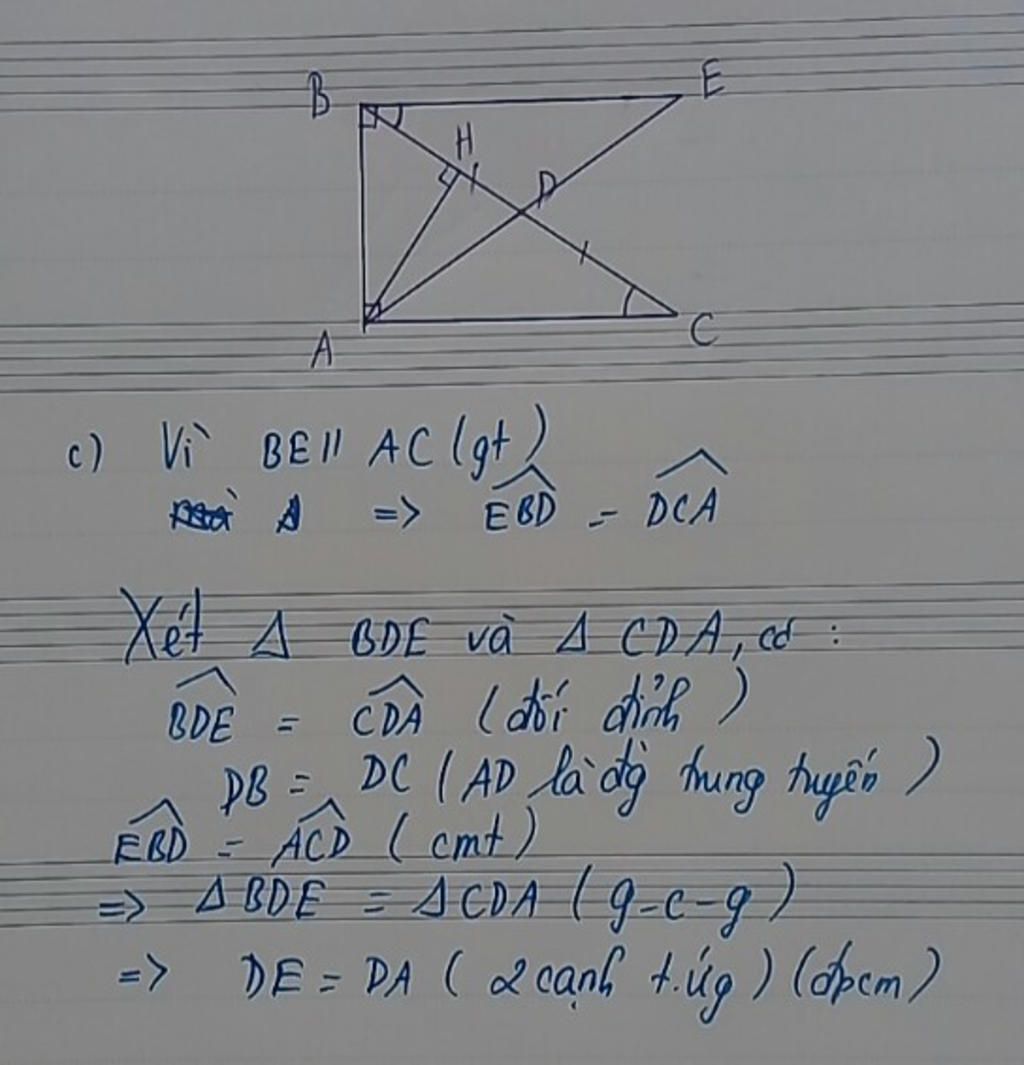 B E
H
D
A C
c) Vì BE // AC (gt)
=> \widehat{EBD} = \widehat{DCA}
Xét Δ BDE và Δ CDA, có :
\widehat{BDE} = \widehat{CDA} (đối đỉnh)
DB = DC (AD là đg trung tuyến)
\widehat{EBD} = \widehat{ACD} (cmt)
=> Δ BDE = Δ CDA (g-c-g)
=> DE = DA (2 cạnh t.ứg) (đpcm)